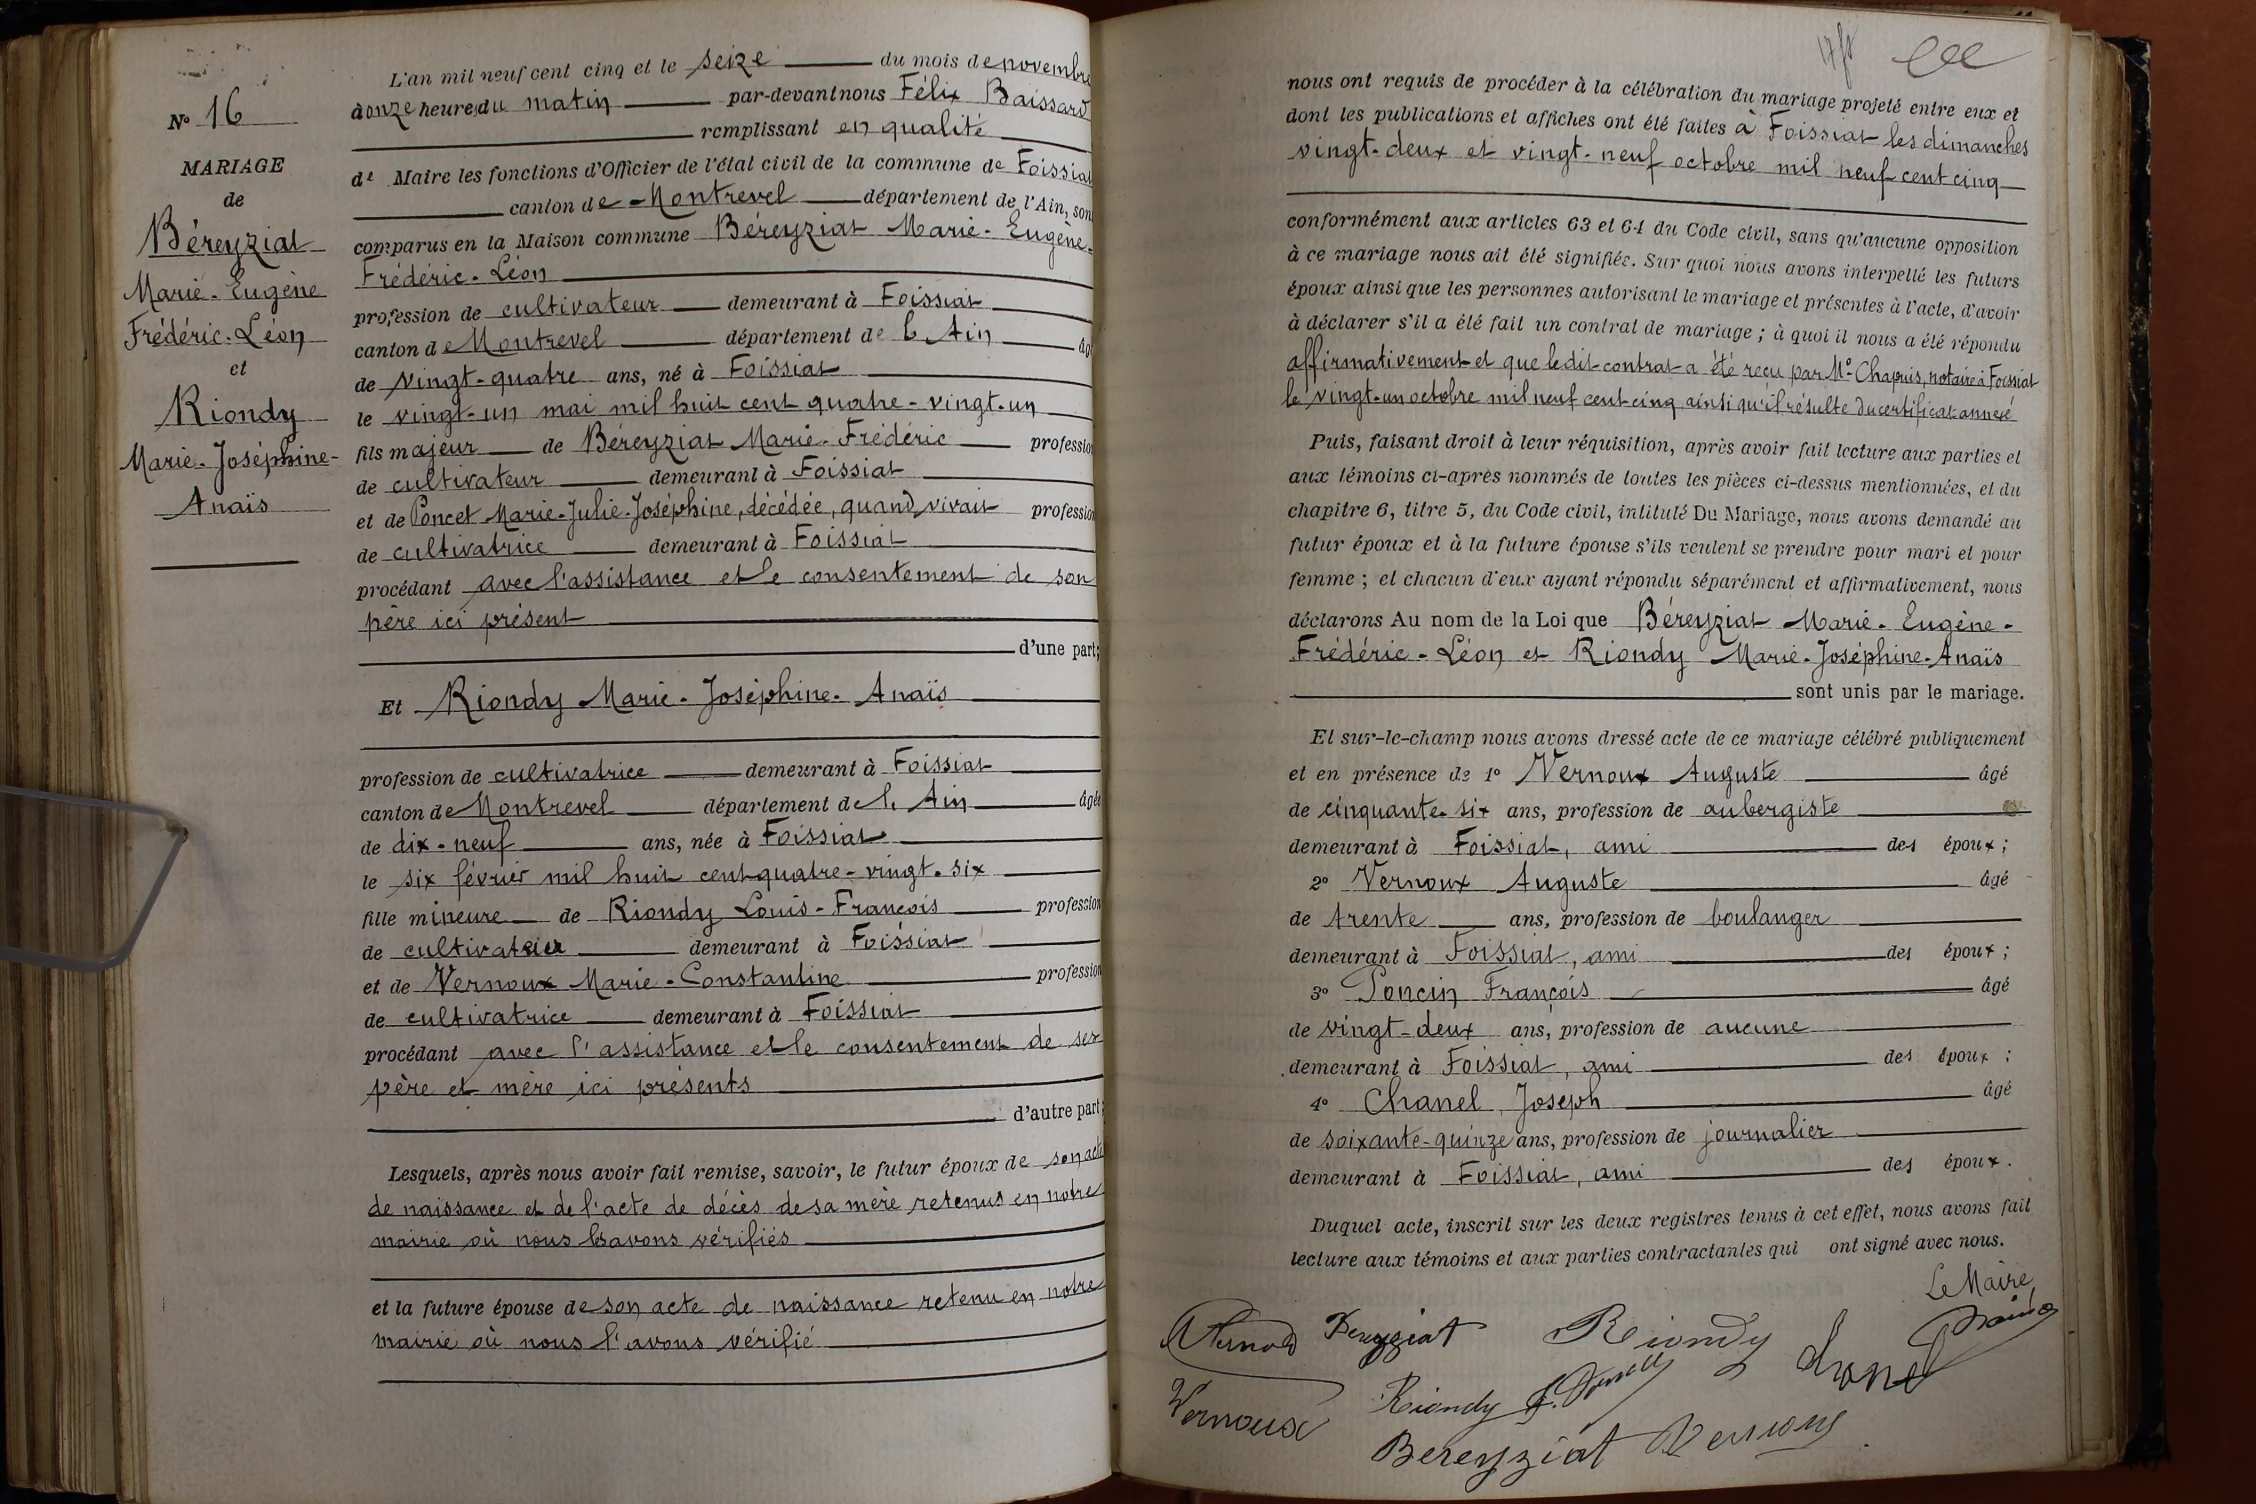 N° 16
MARIAGE
de
Béreyziat
Marie-Eugène
Frédéric-Léon
et
Riondy
Marie-Joséphine-
Anaïs
L'an mil neuf cent cinq et le seize du mois de novembre
à onze heures du matin par-devant nous Félix Baissard
remplissant en qualité
de Maire les fonctions d'Officier de l'état civil de la commune de Foissiat
canton de Montrevel département de l'Ain, sont
comparus en la Maison commune Béreyziat Marie-Eugène-
Frédéric-Léon
profession de cultivateur demeurant à Foissiat
canton de Montrevel département de l'Ain âgé
de vingt-quatre ans, né à Foissiat
le vingt-un mai mil huit cent quatre-vingt-un
fils majeur de Béreyziat Marie-Frédéric profession
de cultivateur demeurant à Foissiat
et de Poncet Marie-Julie-Joséphine, décédée, quand vivait profession
de cultivatrice demeurant à Foissiat
procédant avec l'assistance et le consentement de son
père ici présent
d'une part;
Et Riondy Marie-Joséphine-Anaïs
profession de cultivatrice demeurant à Foissiat
canton de Montrevel département de l'Ain âgée
de dix-neuf ans, née à Foissiat
le six février mil huit cent quatre-vingt-six
fille mineure de Riondy Louis-François profession
de cultivateur demeurant à Foissiat
et de Vernoux Marie-Constantine profession
de cultivatrice demeurant à Foissiat
procédant avec l'assistance et le consentement de ses
père et mère ici présents
d'autre part;
Lesquels, après nous avoir fait remise, savoir, le futur époux de son acte
de naissance et de l'acte de décès de sa mère retenus en notre
mairie où nous les avons vérifiés
et la future épouse de son acte de naissance retenu en notre
mairie où nous l'avons vérifié
nous ont requis de procéder à la célébration du mariage projeté entre eux et
dont les publications et affiches ont été faites à Foissiat les dimanches
vingt-deux et vingt-neuf octobre mil neuf cent cinq
conformément aux articles 63 et 64 du Code civil, sans qu'aucune opposition
à ce mariage nous ait été signifiée. Sur quoi nous avons interpellé les futurs
époux ainsi que les personnes autorisant le mariage et présentes à l'acte, d'avoir
à déclarer s'il a été fait un contrat de mariage ; à quoi il nous a été répondu
affirmativement et que ledit contrat a été reçu par Me Chapuis, notaire à Foissiat
le vingt-un octobre mil neuf cent cinq ainsi qu'il résulte du certificat annexé
Puis, faisant droit à leur réquisition, après avoir fait lecture aux parties et
aux témoins ci-après nommés de toutes les pièces ci-dessus mentionnées, et du
chapitre 6, titre 5, du Code civil, intitulé Du Mariage, nous avons demandé au
futur époux et à la future épouse s'ils veulent se prendre pour mari et pour
femme ; et chacun d'eux ayant répondu séparément et affirmativement, nous
déclarons Au nom de la Loi que Béreyziat Marie-Eugène-
Frédéric-Léon et Riondy Marie-Joséphine-Anaïs
sont unis par le mariage.
Et sur-le-champ nous avons dressé acte de ce mariage célébré publiquement
et en présence de 1° Vernoux Auguste âgé
de cinquante-six ans, profession de aubergiste
demeurant à Foissiat, ami des époux ;
2° Vernoux Auguste âgé
de trente ans, profession de boulanger
demeurant à Foissiat, ami des époux ;
3° Poncin François âgé
de vingt-deux ans, profession de aucune
demeurant à Foissiat, ami des époux ;
4° Chanel Joseph âgé
de soixante-quinze ans, profession de journalier
demeurant à Foissiat, ami des époux.
Duquel acte, inscrit sur les deux registres tenus à cet effet, nous avons fait
lecture aux témoins et aux parties contractantes qui ont signé avec nous.
Le Maire
Bereyziat Riondy
Chanel
Vernoux Riondy
Bereyziat Vernoux